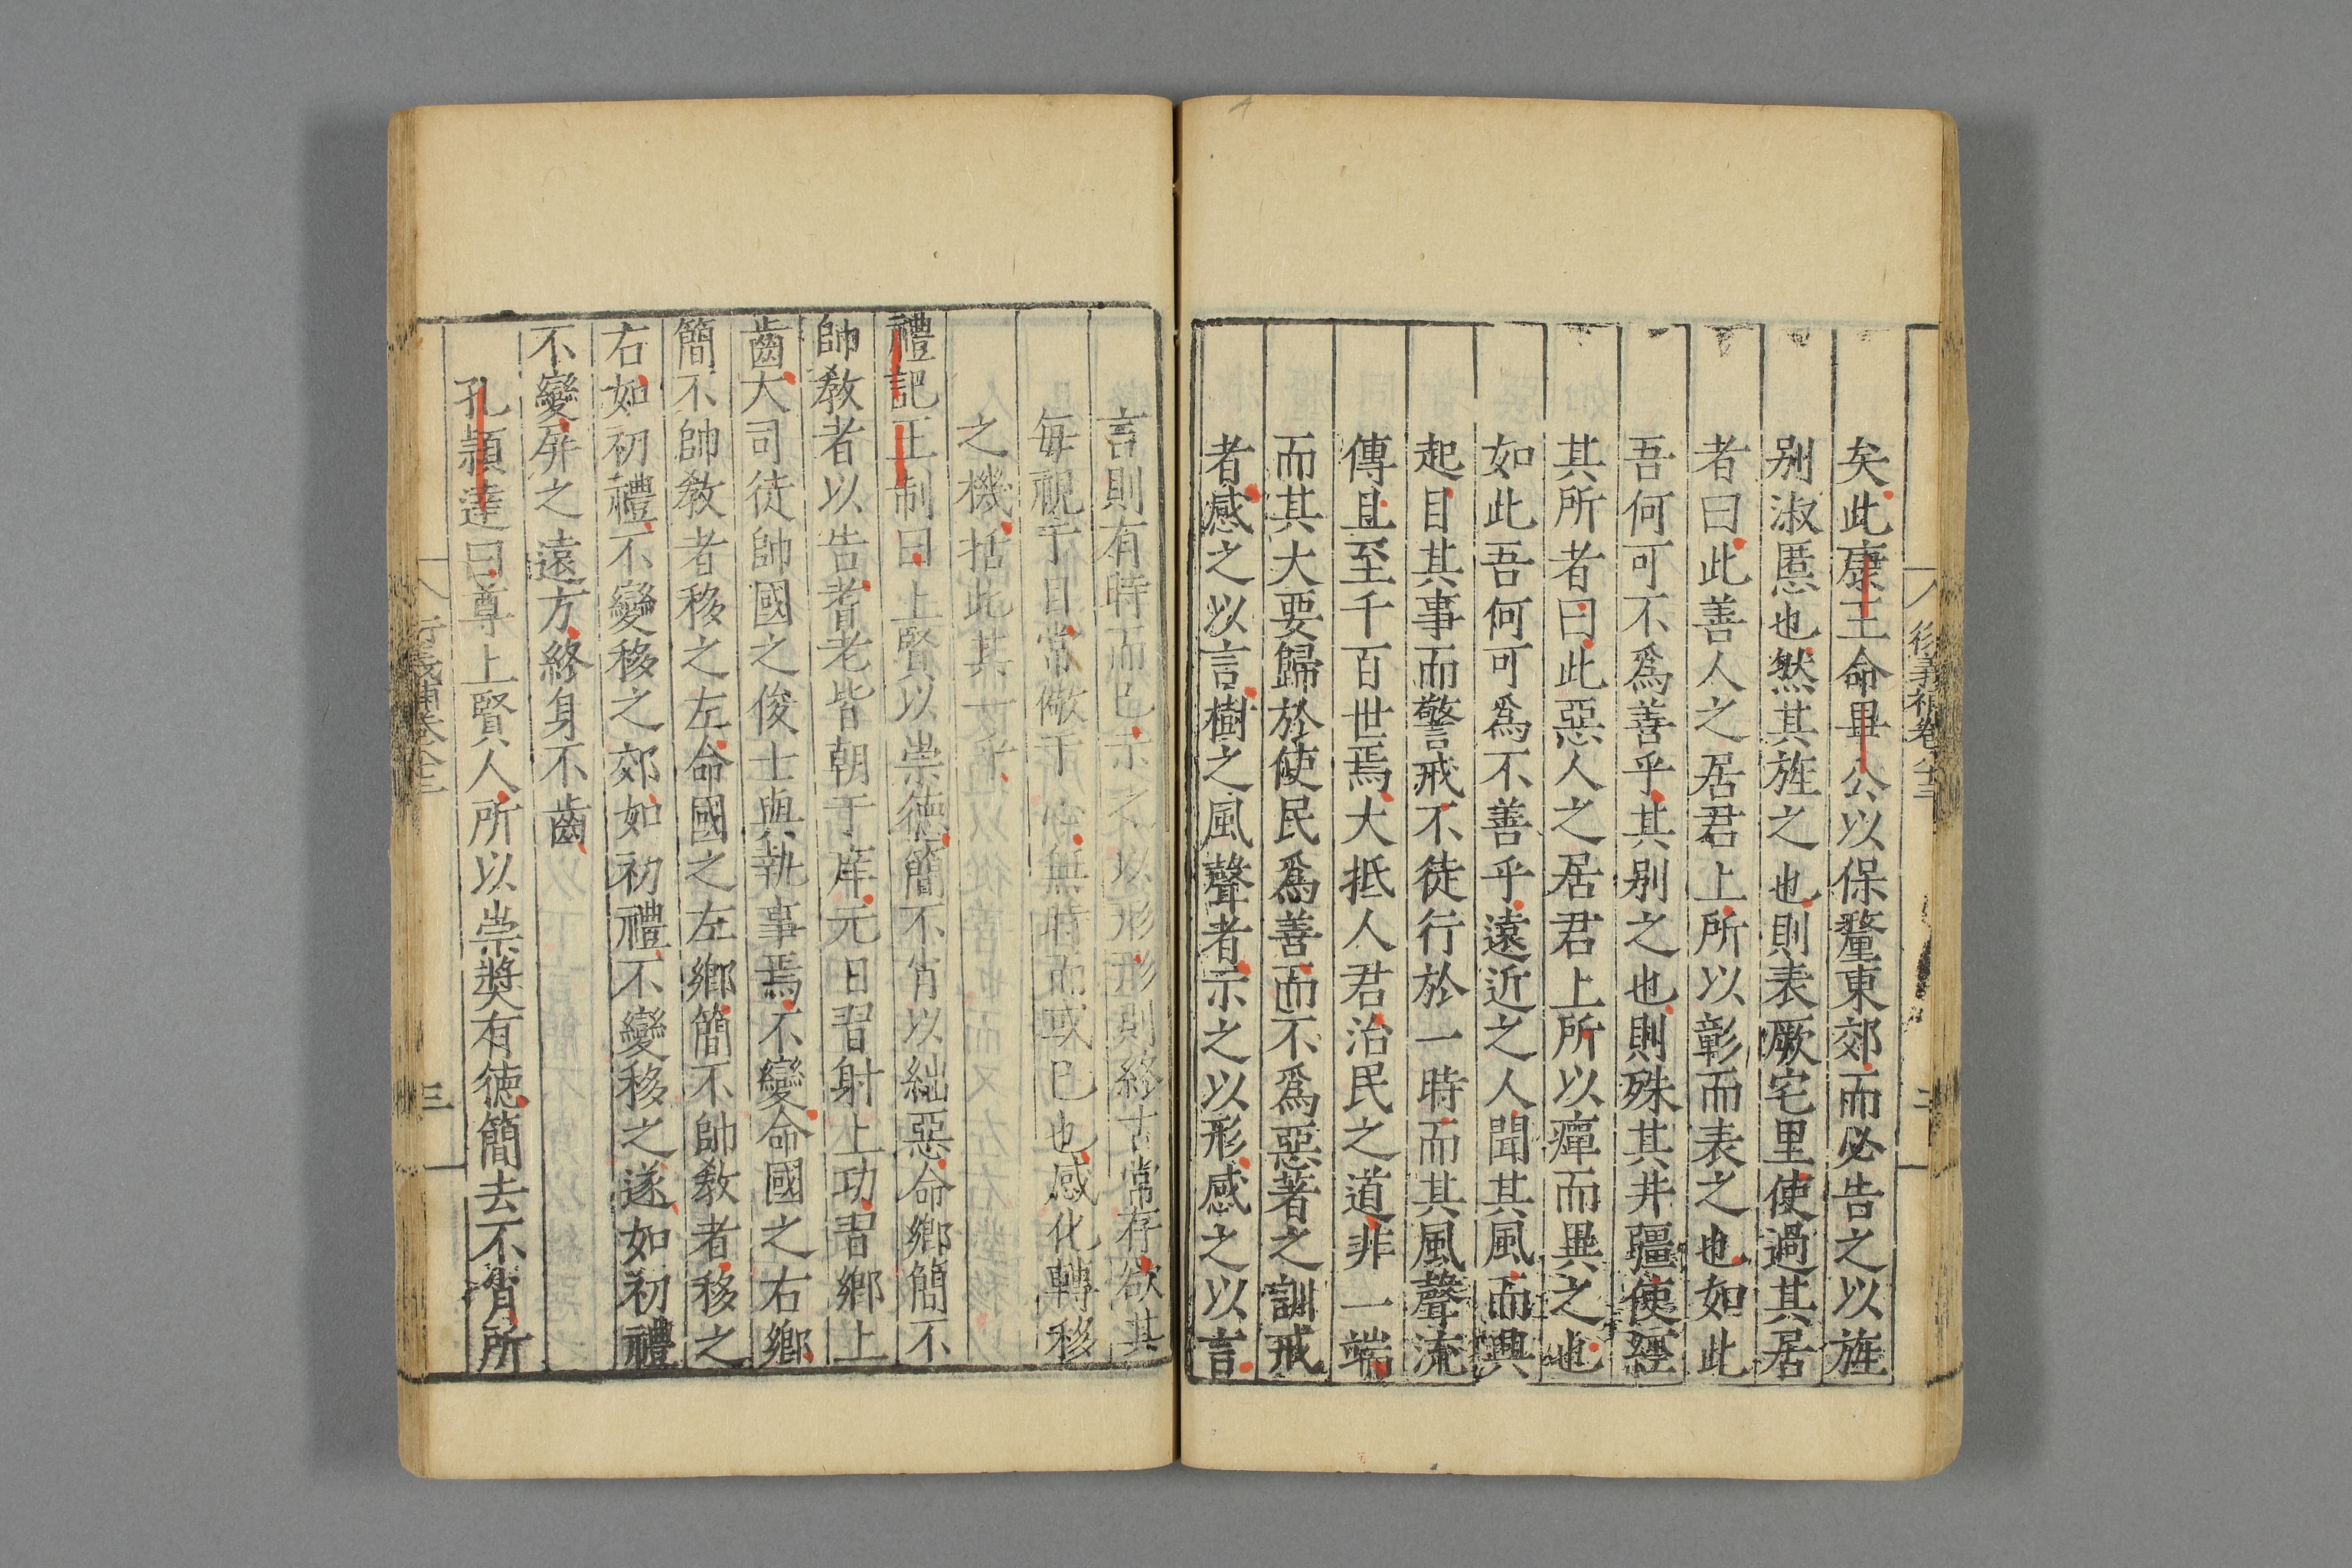 衍義補卷八十三
矣此康王命畢公以保釐東郊而必告之以旌
别淑慝也然其旌之也則表厥宅里使過其居
者曰此善人之居君上所以彰而表之也如此
吾何可不爲善乎其别之也則殊其井疆使經
其所者曰此惡人之居君上所以癉而異之也
如此吾何可爲不善乎遠近之人聞其風而興
起目其事而警戒不徒行於一時而其風聲流
傳且至千百世焉大抵人君治民之道非一端
而其大要歸於使民爲善而不爲惡著之訓戒
者感之以言樹之風聲者示之以形感之以言
言則有時而已示之以形形則終古常存欲其
每視于目常儆于心無時而或已也感化轉移
之機括此其一歟
禮記王制曰上賢以崇德簡不肖以絀惡命鄉簡不
帥敎者以告耆老皆朝于庠元日習射上功習鄉上
齒大司徒帥國之俊士與執事焉不變命國之右鄉
簡不帥敎者移之左命國之左鄉簡不帥敎者移之
右如初禮不變移之郊如初禮不變移之遂如初禮
不變屏之遠方終身不齒
孔頴達曰尊上賢人所以崇奬有徳簡去不肖所
衍義補卷八十三
三